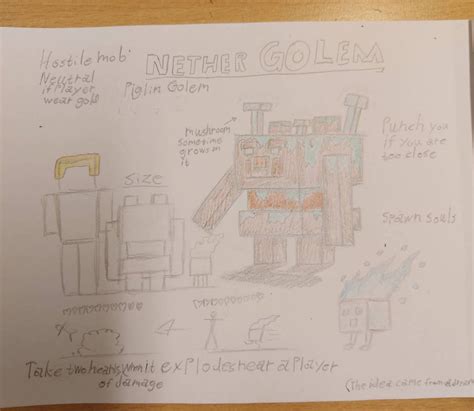 NETHER GOLEM
Hostile mob
Neutral
if Player
wear gold
Piglin Golem
mushroom
sometime
grows on
it
Punch you
if you are
too close
size
Spawn souls
Take two hearts when it explodes near a player
of damage
(The idea came from